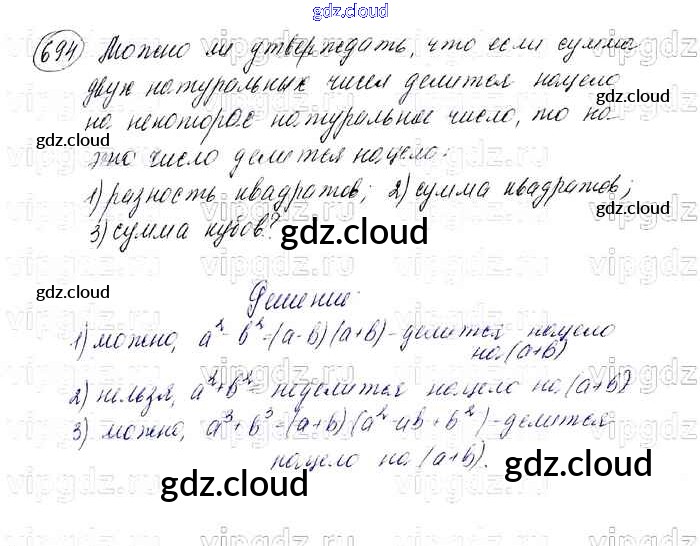 gdz.cloud
694 Можно ли утверждать, что если сумма
двух натуральных чисел делится нацело
на некоторое натуральное число, то на
gdz.cloud
gdz.cloud
это число делится нацело:
1) разность квадратов; 2) сумма квадратов;
3) сумма кубов?
gdz.cloud
gdz.cloud
Решение:
1) можно, a² - b² = (a-b)(a+b) - делится нацело
на (a+b)
2) нельзя, a² + b² - не делится нацело на (a+b)
3) можно, a³ + b³ = (a+b)(a² - ab + b²) - делится
нацело на (a+b).
gdz.cloud
gdz.cloud